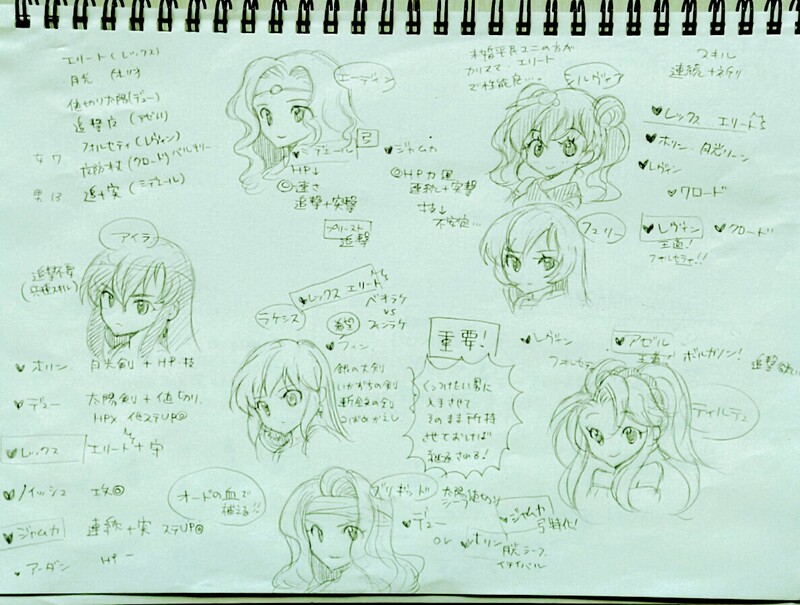 エリート(レックス)
月光 (ホリン)
値切り太陽(デュー)
追撃 (アゼル)
フォルセティ(レヴィン)
(クロード)
女7
男13
追+突(ミデェール)
エーディン
弓
ミデェール
HP↓
◎速さ
追撃+突撃
ジャムカ
◎HP力
連続+突撃
不安定…
プリースト
追撃
未婚平民ユニの方が
カリスマ、エリート
で性能良…。
シルヴィア
スキル
連続+祈り
レックス エリート
ホリン 月光
レヴィン
クロード
フュリー
レヴィン
王道!
フォルセティ!!
クロード
アイラ
追撃不要
ホリン 月光剣+HP・技
デュー 太陽剣+値切り
HP× 他ステUP◎
レックス エリート+守
ノイッシュ
ジャムカ 連続+突 ステUP◎
アーダン HP
ラケシス
レックス エリート
ベオラケ
VS
フィンラケ
希望
フィン
銀の大剣
いかずちの剣
斬鉄の剣
つばめがえし
重要!
くっつけたい男に
入手させて
そのまま所持
させておけば
継承される!
レヴィン
フォルセティ
アゼル
王道 ボルガノン!
追撃
ティルテュ
オードの血で
補える!!
ブリギッド
太陽 値切り
シーフ
デュー
or
ホリン
月光
イチイバル
ジャムカ
弓特化!